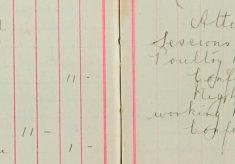 11 -
11 -
1 -
Atte
Sessions
Poultry
Conf
Nigh
working
Confe